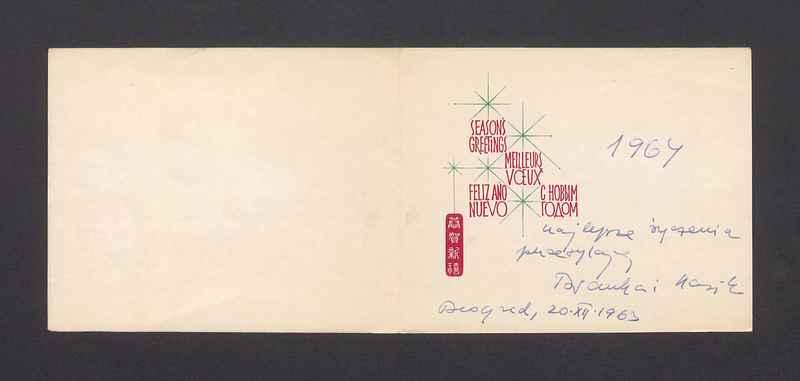 SEASON'S
GREETINGS
MEILLEURS
VŒUX
FELIZ AÑO
NUEVO
С НОВЫМ
ГОДОМ
恭
賀
新
禧
1964
najlepsze życzenia
przesyłają
Beograd, 20.XII.1963